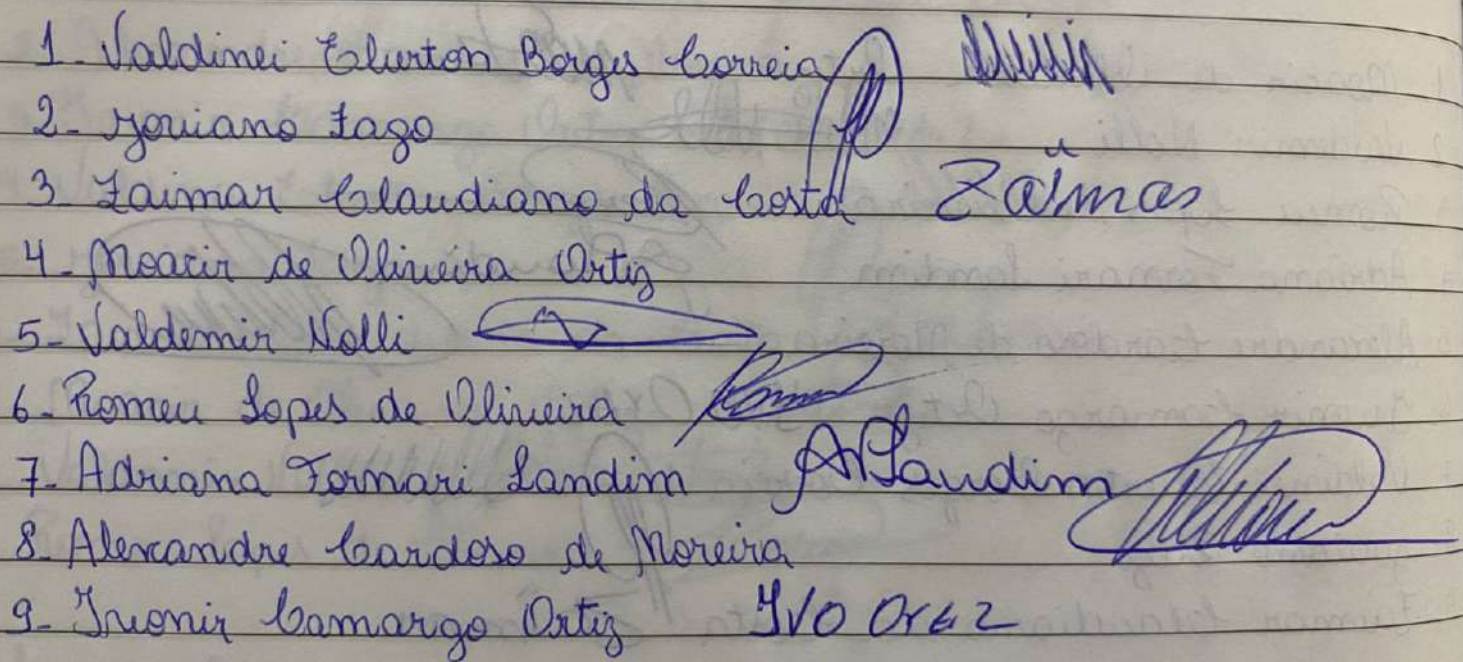 1- Valdinei Elurton Borges Correia
2- Joviano Zago
3- Zaimar Claudiano da Costa Zaimar
4- Moacir de Oliveira Ortiz
5- Valdemir Nolli
6- Romeu Lopes de Oliveira
7- Adriana Fornari Landim ALandim
8- Alexandre Cardoso de Moreira
9- Ivonir Camargo Ortiz IVO OrtiZ